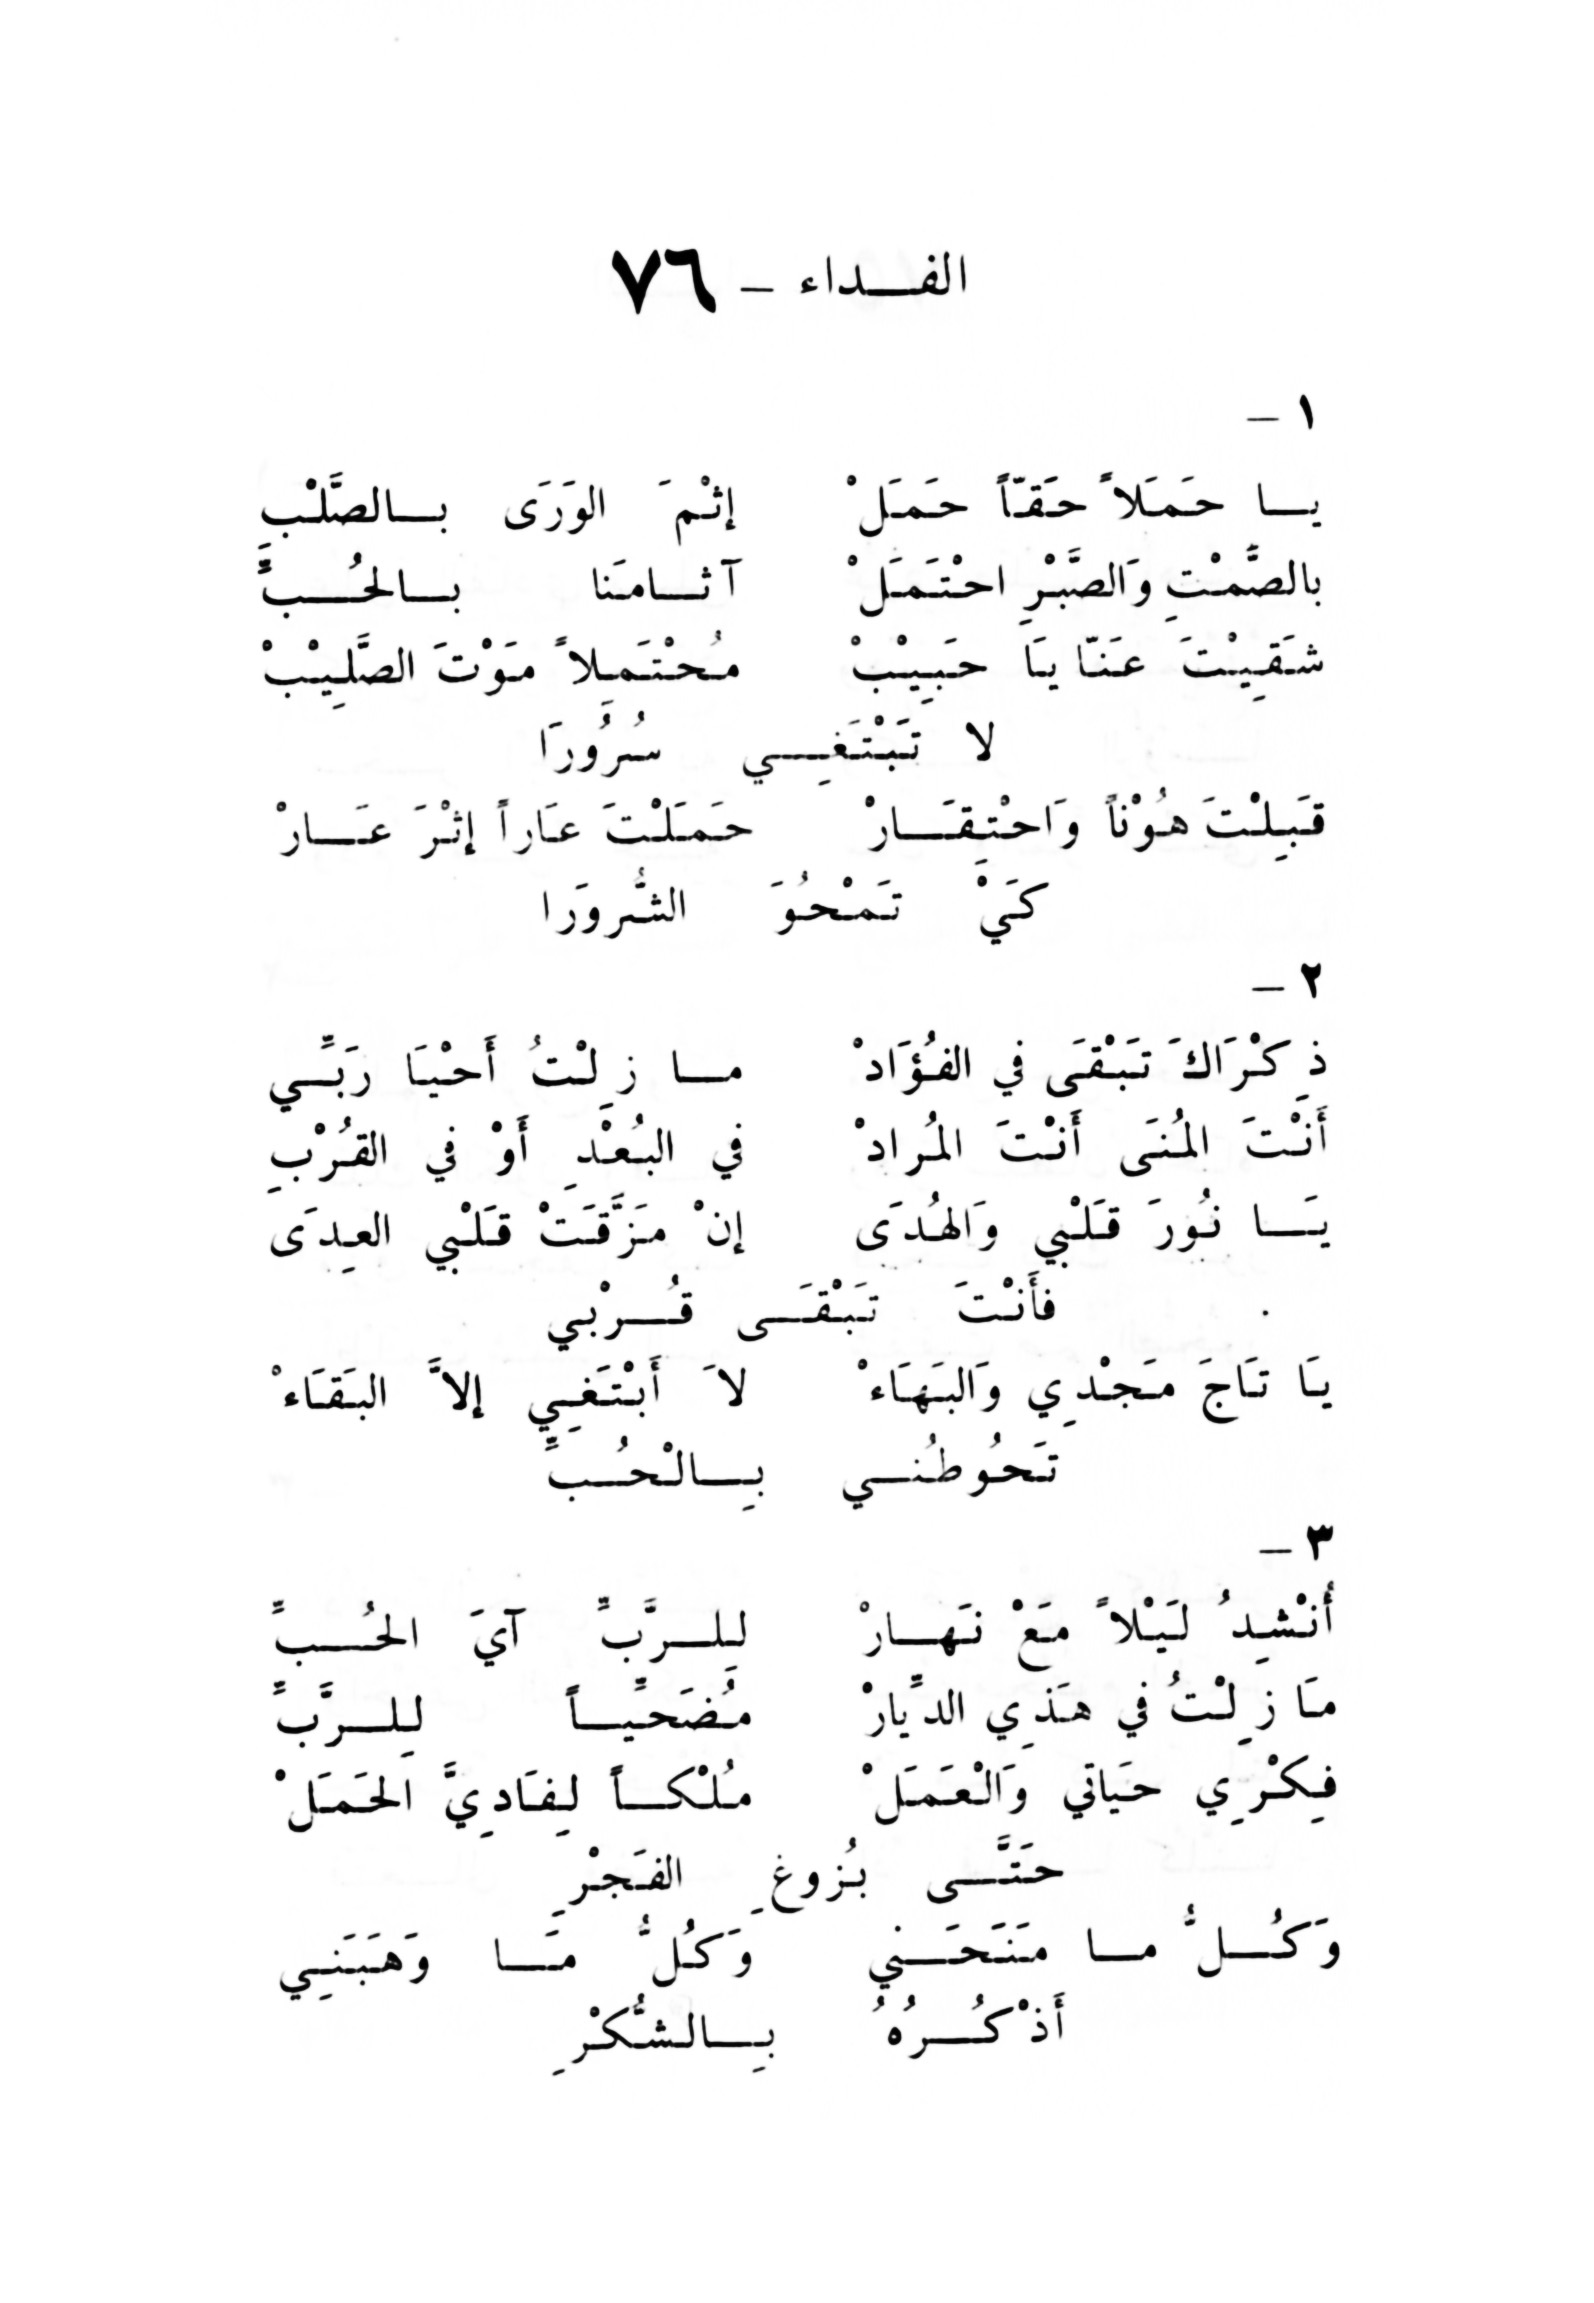 الفداء - ٧٦
١ -
يا حَمَلاً حَقّاً حَمَلْ إثْمَ الوَرَى بالصَّلْبِ
بالصَّمْتِ وَالصَّبْرِ احْتَمَلْ آثامَنا بالحُبِّ
شَقِيْتَ عَنّا يَا حَبِيْبْ مُحْتَمِلاً مَوْتَ الصَّلِيْبْ
لا تَبْتَغِي سُرُورَا
قَبِلْتَ هُوْناً وَاحْتِقَارْ حَمَلْتَ عَاراً إثْرَ عَارْ
كَيْ تَمْحُوَ الشُّرورَا
٢ -
ذِكْرَاكَ تَبْقَى في الفُؤَادْ ما زِلْتُ أَحْيَا رَبِّي
أَنْتَ المُنَى أَنْتَ المُرادْ في البُعْدِ أَوْ في القُرْبِ
يَا نُورَ قَلْبي وَالهُدَى إنْ مَزَّقَتْ قَلْبي العِدَى
فأَنْتَ تَبْقَى قُرْبي
يَا تَاجَ مَجْدِي وَالبَهَاءْ لاَ أَبْتَغِي إلاَّ البَقَاءْ
تَحُوطُني بِالْحُبِّ
٣ -
أُنْشِدُ لَيْلاً مَعْ نَهارْ لِلرَّبِّ آيَ الحُبِّ
مَا زِلْتُ في هَذِي الدِّيارْ مُضَحِّياً لِلرَّبِّ
فِكْرِي حَياتي وَالْعَمَلْ مُلْكاً لِفَادِيَّ الحَمَلْ
حَتَّى بُزوغِ الفَجْرِ
وَكُلُّ ما مَنَحَني وَكُلُّ مَا وَهَبَنِي
أَذْكُرُهُ بِالشُّكْرِ